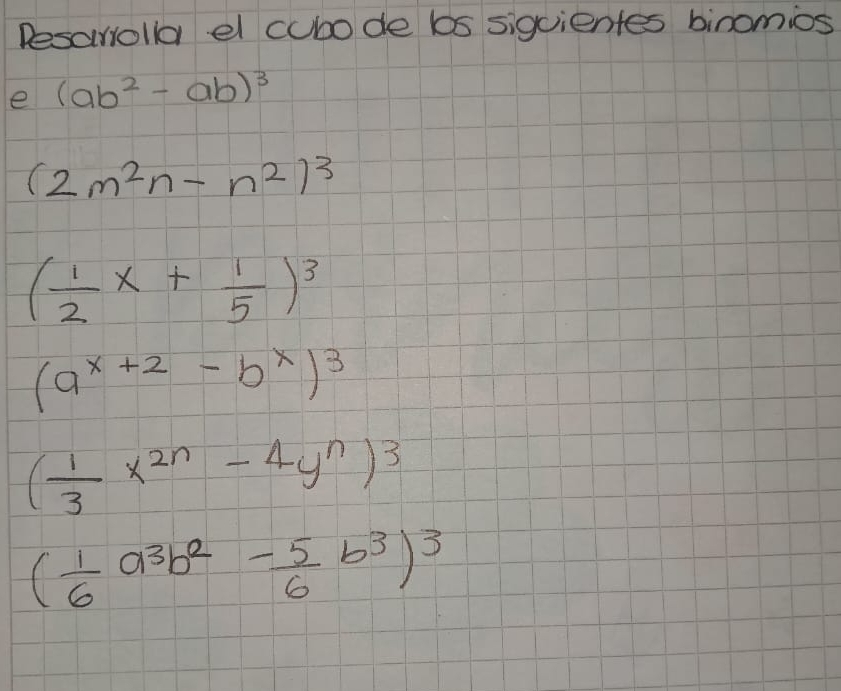 Desarrolla el cubo de los siguientes binomios
e (ab² - ab)³
(2m²n - n²)³
(1/2 x + 1/5)³
(aˣ⁺² - bˣ)³
(1/3 x²ⁿ - 4yⁿ)³
(1/6 a³b² - 5/6 b³)³